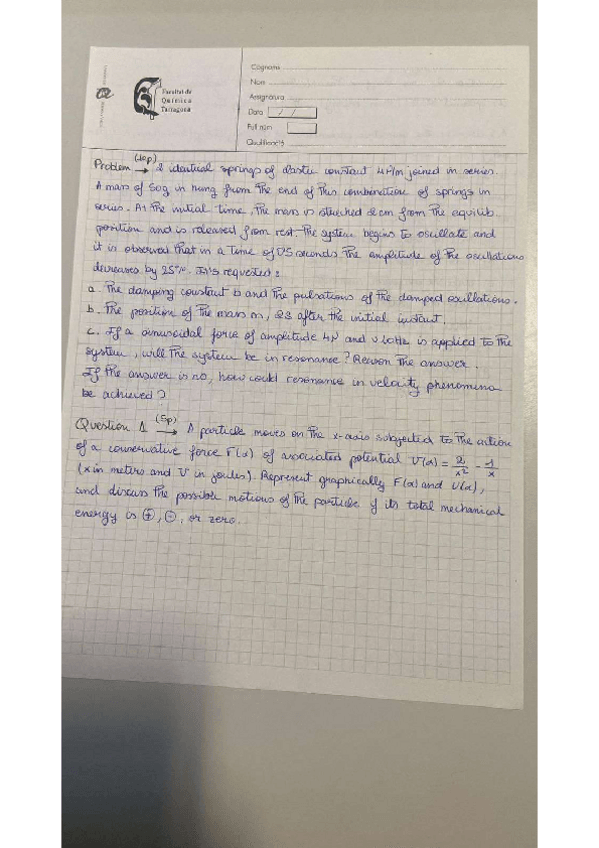 Facultat de
Química
Tarragona
Cognoms
Nom
Assignatura
Data / /
Full núm
Qualificació
Problem (10p) → 2 identical springs of elastic constant 4N/m joined in series.
A mass of 50g is hung from the end of this combination of springs in
series. At the initial time, the mass is stretched 2cm from the equilib.
position and is released from rest. The system begins to oscillate and
it is observed that in a time of 0'5 seconds the amplitude of the oscillations
decreases by 25%. It's requested:
a. The damping constant b and the pulsations of the damped oscillations.
b. The position of the mass m, 2s after the initial instant.
c. If a sinusoidal force of amplitude 4N and 10Hz is applied to the
system, will the system be in resonance? Reason the answer.
If the answer is no, how could resonance in velocity phenomena
be achieved?
Question 1 (5p) → A particle moves on the x-axis subjected to the action
of a conservative force F(x) of associated potential U(x) = 2/x² - 1/x
(x in metres and U in joules). Represent graphically F(x) and U(x),
and discuss the possible motions of the particle if its total mechanical
energy is ⊕, ⊖, or zero.